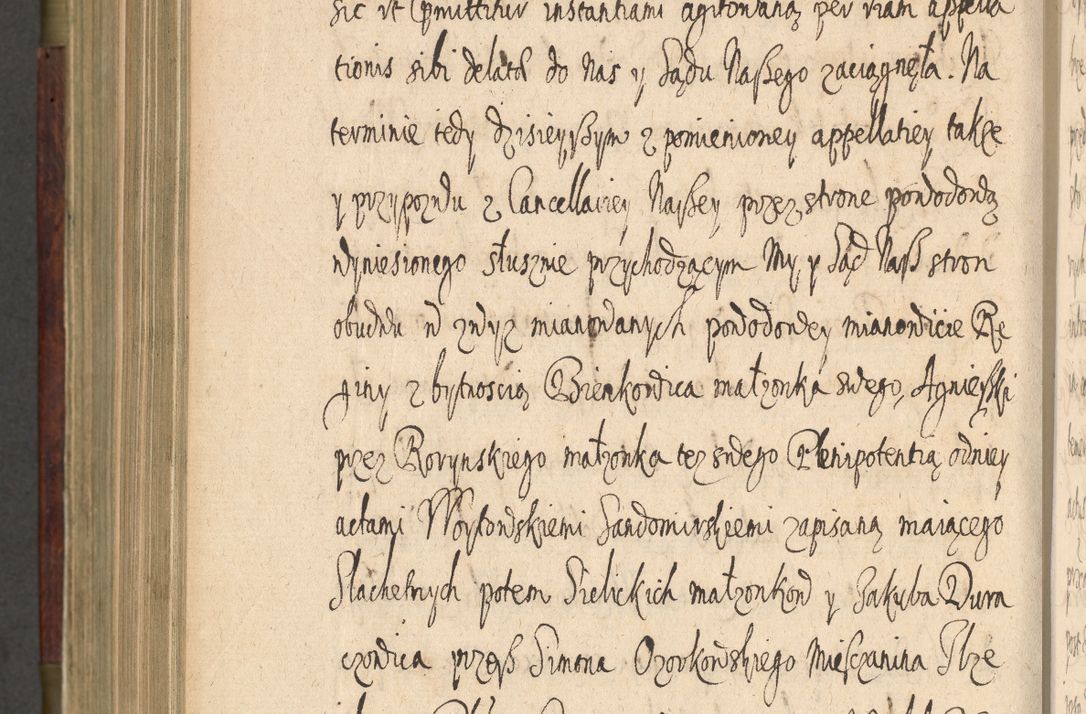 sic ut praemittitur instantiami agitowaną per viam appella
tionis sibi delatą do Nas y Sądu Naßego zaciągnęła. Na
terminie tedy dzisieyßym z pomienioney appellatiey także
y przypozwu z Cancellariey Naßey przez stronę powodową
wyniesionego słusznie przychodzącym My y Sąd Naß stron
obudwu w zwyż mianowanych powodowey mianowicie Re
giny z bytnoscią Bienkowica małzonka swego, Agnießki
przez Rovynskiego małzonka tez swego Plenipotentią odniey
actami Woytowskiemi Sandomirskiemi zapisaną maiącego
Slachetnych potem Sielickich małzonkow y Jakuba Dura
czowica przeß Simona Ozorkowskiego Miesczanina Ilze